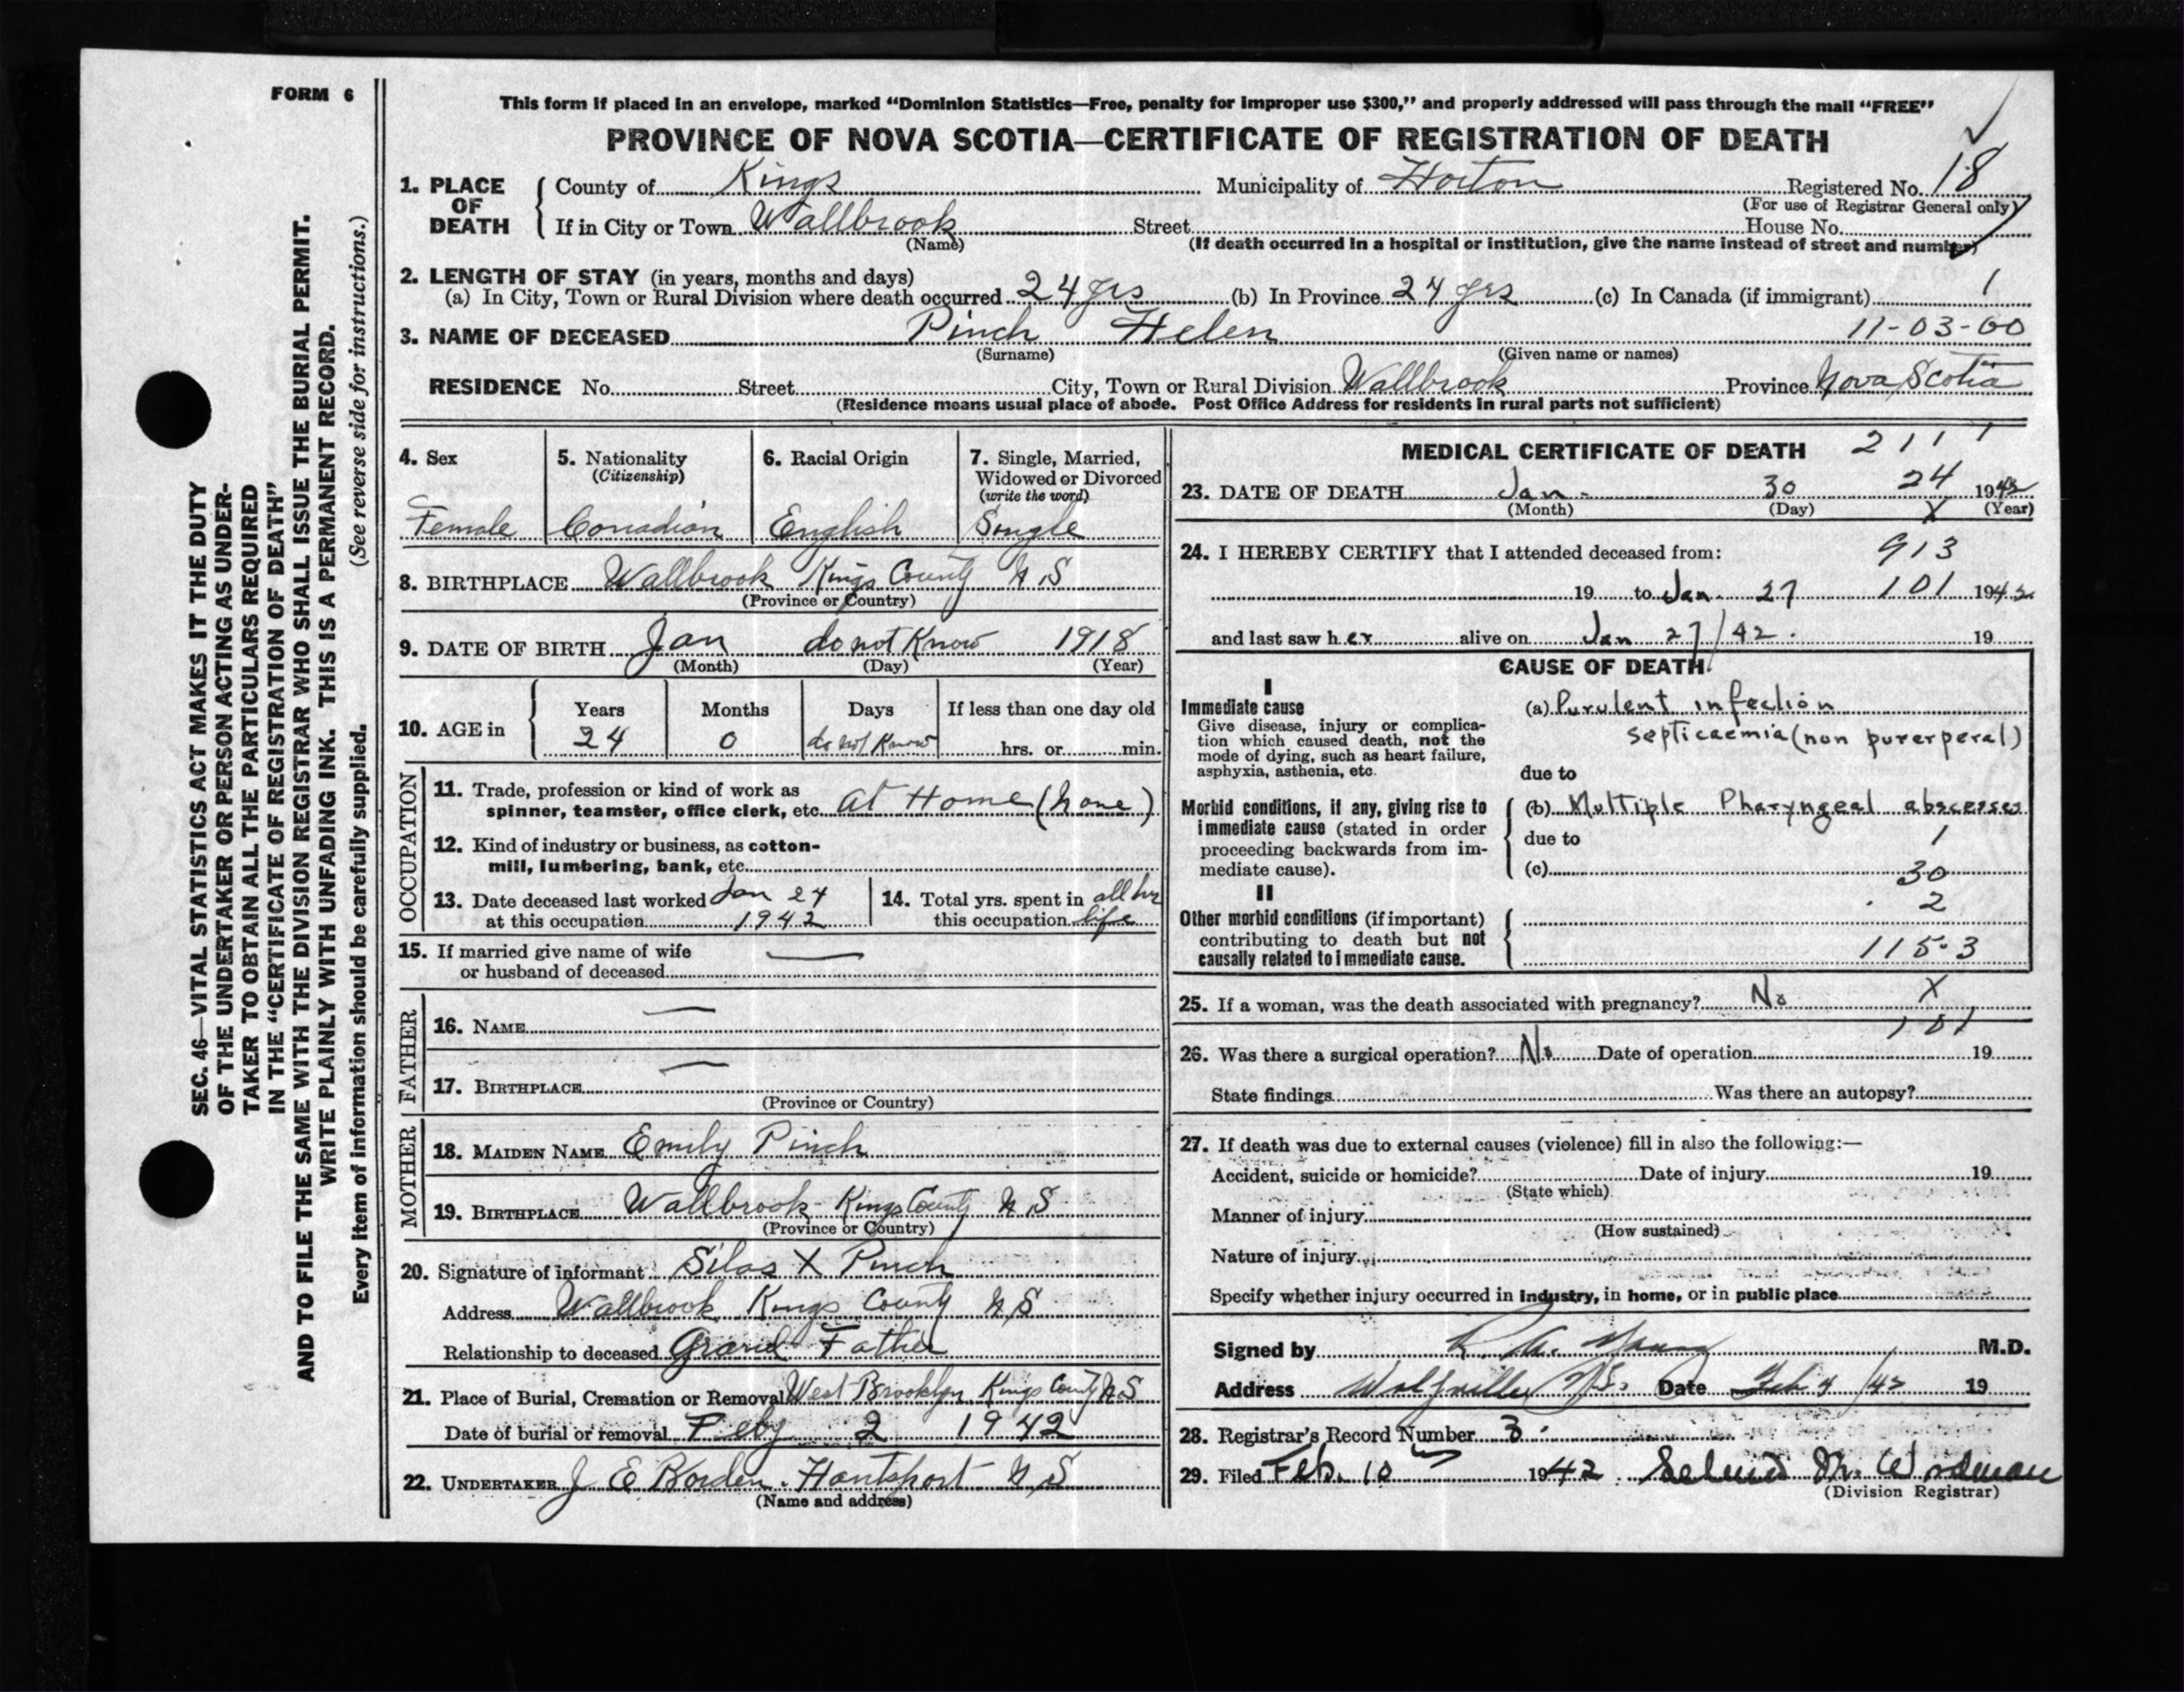 FORM 6
This form if placed in an envelope, marked “Dominion Statistics—Free, penalty for improper use $300,” and properly addressed will pass through the mail “FREE”
PROVINCE OF NOVA SCOTIA—CERTIFICATE OF REGISTRATION OF DEATH
1. PLACE OF DEATH County of Kings Municipality of Horton Registered No. 18
(For use of Registrar General only)
If in City or Town Wallbrook Street House No.
(Name) (If death occurred in a hospital or institution, give the name instead of street and number)
2. LENGTH OF STAY (in years, months and days) 1
(a) In City, Town or Rural Division where death occurred 24 yrs (b) In Province 24 yrs (c) In Canada (if immigrant)
3. NAME OF DECEASED Pinch Helen 11-03-00
(Surname) (Given name or names)
RESIDENCE No. Street City, Town or Rural Division Wallbrook Province Nova Scotia
(Residence means usual place of abode. Post Office Address for residents in rural parts not sufficient)
4. Sex 5. Nationality 6. Racial Origin 7. Single, Married,
(Citizenship) Widowed or Divorced
(write the word)
Female Canadian English Single
8. BIRTHPLACE Wallbrook Kings County N.S
(Province or Country)
9. DATE OF BIRTH Jan do not Know 1918
(Month) (Day) (Year)
10. AGE in Years Months Days If less than one day old
24 0 do not Know hrs. or min.
OCCUPATION
11. Trade, profession or kind of work as
spinner, teamster, office clerk, etc. At Home (none)
12. Kind of industry or business, as cotton-
mill, lumbering, bank, etc.
13. Date deceased last worked Jan 24
at this occupation 1942
14. Total yrs. spent in all her
this occupation life
15. If married give name of wife
or husband of deceased —
FATHER
16. NAME —
17. BIRTHPLACE —
(Province or Country)
MOTHER
18. MAIDEN NAME Emily Pinch
19. BIRTHPLACE Wallbrook Kings County N.S
(Province or Country)
20. Signature of informant Silas X Pinch
Address Wallbrook Kings County N.S
Relationship to deceased Grand Father
21. Place of Burial, Cremation or Removal West Brooklyn Kings County N.S
Date of burial or removal Feby 2 1942
22. UNDERTAKER J E Borden Hantsport N.S
(Name and address)
MEDICAL CERTIFICATE OF DEATH 2111
23. DATE OF DEATH Jan. 30 24 1942
(Month) (Day) X (Year)
24. I HEREBY CERTIFY that I attended deceased from: 913
19 to Jan. 27 101 1942
and last saw her alive on Jan 27/42. 19
CAUSE OF DEATH
I
Immediate cause
Give disease, injury or complica-
tion which caused death, not the
mode of dying, such as heart failure,
asphyxia, asthenia, etc.
(a) Purulent infection
septicaemia (non purerperal)
due to
Morbid conditions, if any, giving rise to
immediate cause (stated in order
proceeding backwards from im-
mediate cause).
(b) Multiple Pharyngeal abscesses
due to 1
(c) 30
II 2
Other morbid conditions (if important)
contributing to death but not
causally related to immediate cause.
115.3
25. If a woman, was the death associated with pregnancy? No X
101
26. Was there a surgical operation? No Date of operation 19
State findings Was there an autopsy?
27. If death was due to external causes (violence) fill in also the following:—
Accident, suicide or homicide? Date of injury 19
(State which)
Manner of injury
(How sustained)
Nature of injury
Specify whether injury occurred in industry, in home, or in public place
Signed by M.D.
Address Wolfville N.S. Date Feb 4/42 19
28. Registrar's Record Number 3.
29. Filed Feb. 10 1942 M. Woodman
(Division Registrar)
SEC. 46—VITAL STATISTICS ACT MAKES IT THE DUTY
OF THE UNDERTAKER OR PERSON ACTING AS UNDER-
TAKER TO OBTAIN ALL THE PARTICULARS REQUIRED
IN THE “CERTIFICATE OF REGISTRATION OF DEATH”
AND TO FILE THE SAME WITH THE DIVISION REGISTRAR WHO SHALL ISSUE THE BURIAL PERMIT.
WRITE PLAINLY WITH UNFADING INK. THIS IS A PERMANENT RECORD.
Every item of information should be carefully supplied. (See reverse side for instructions.)